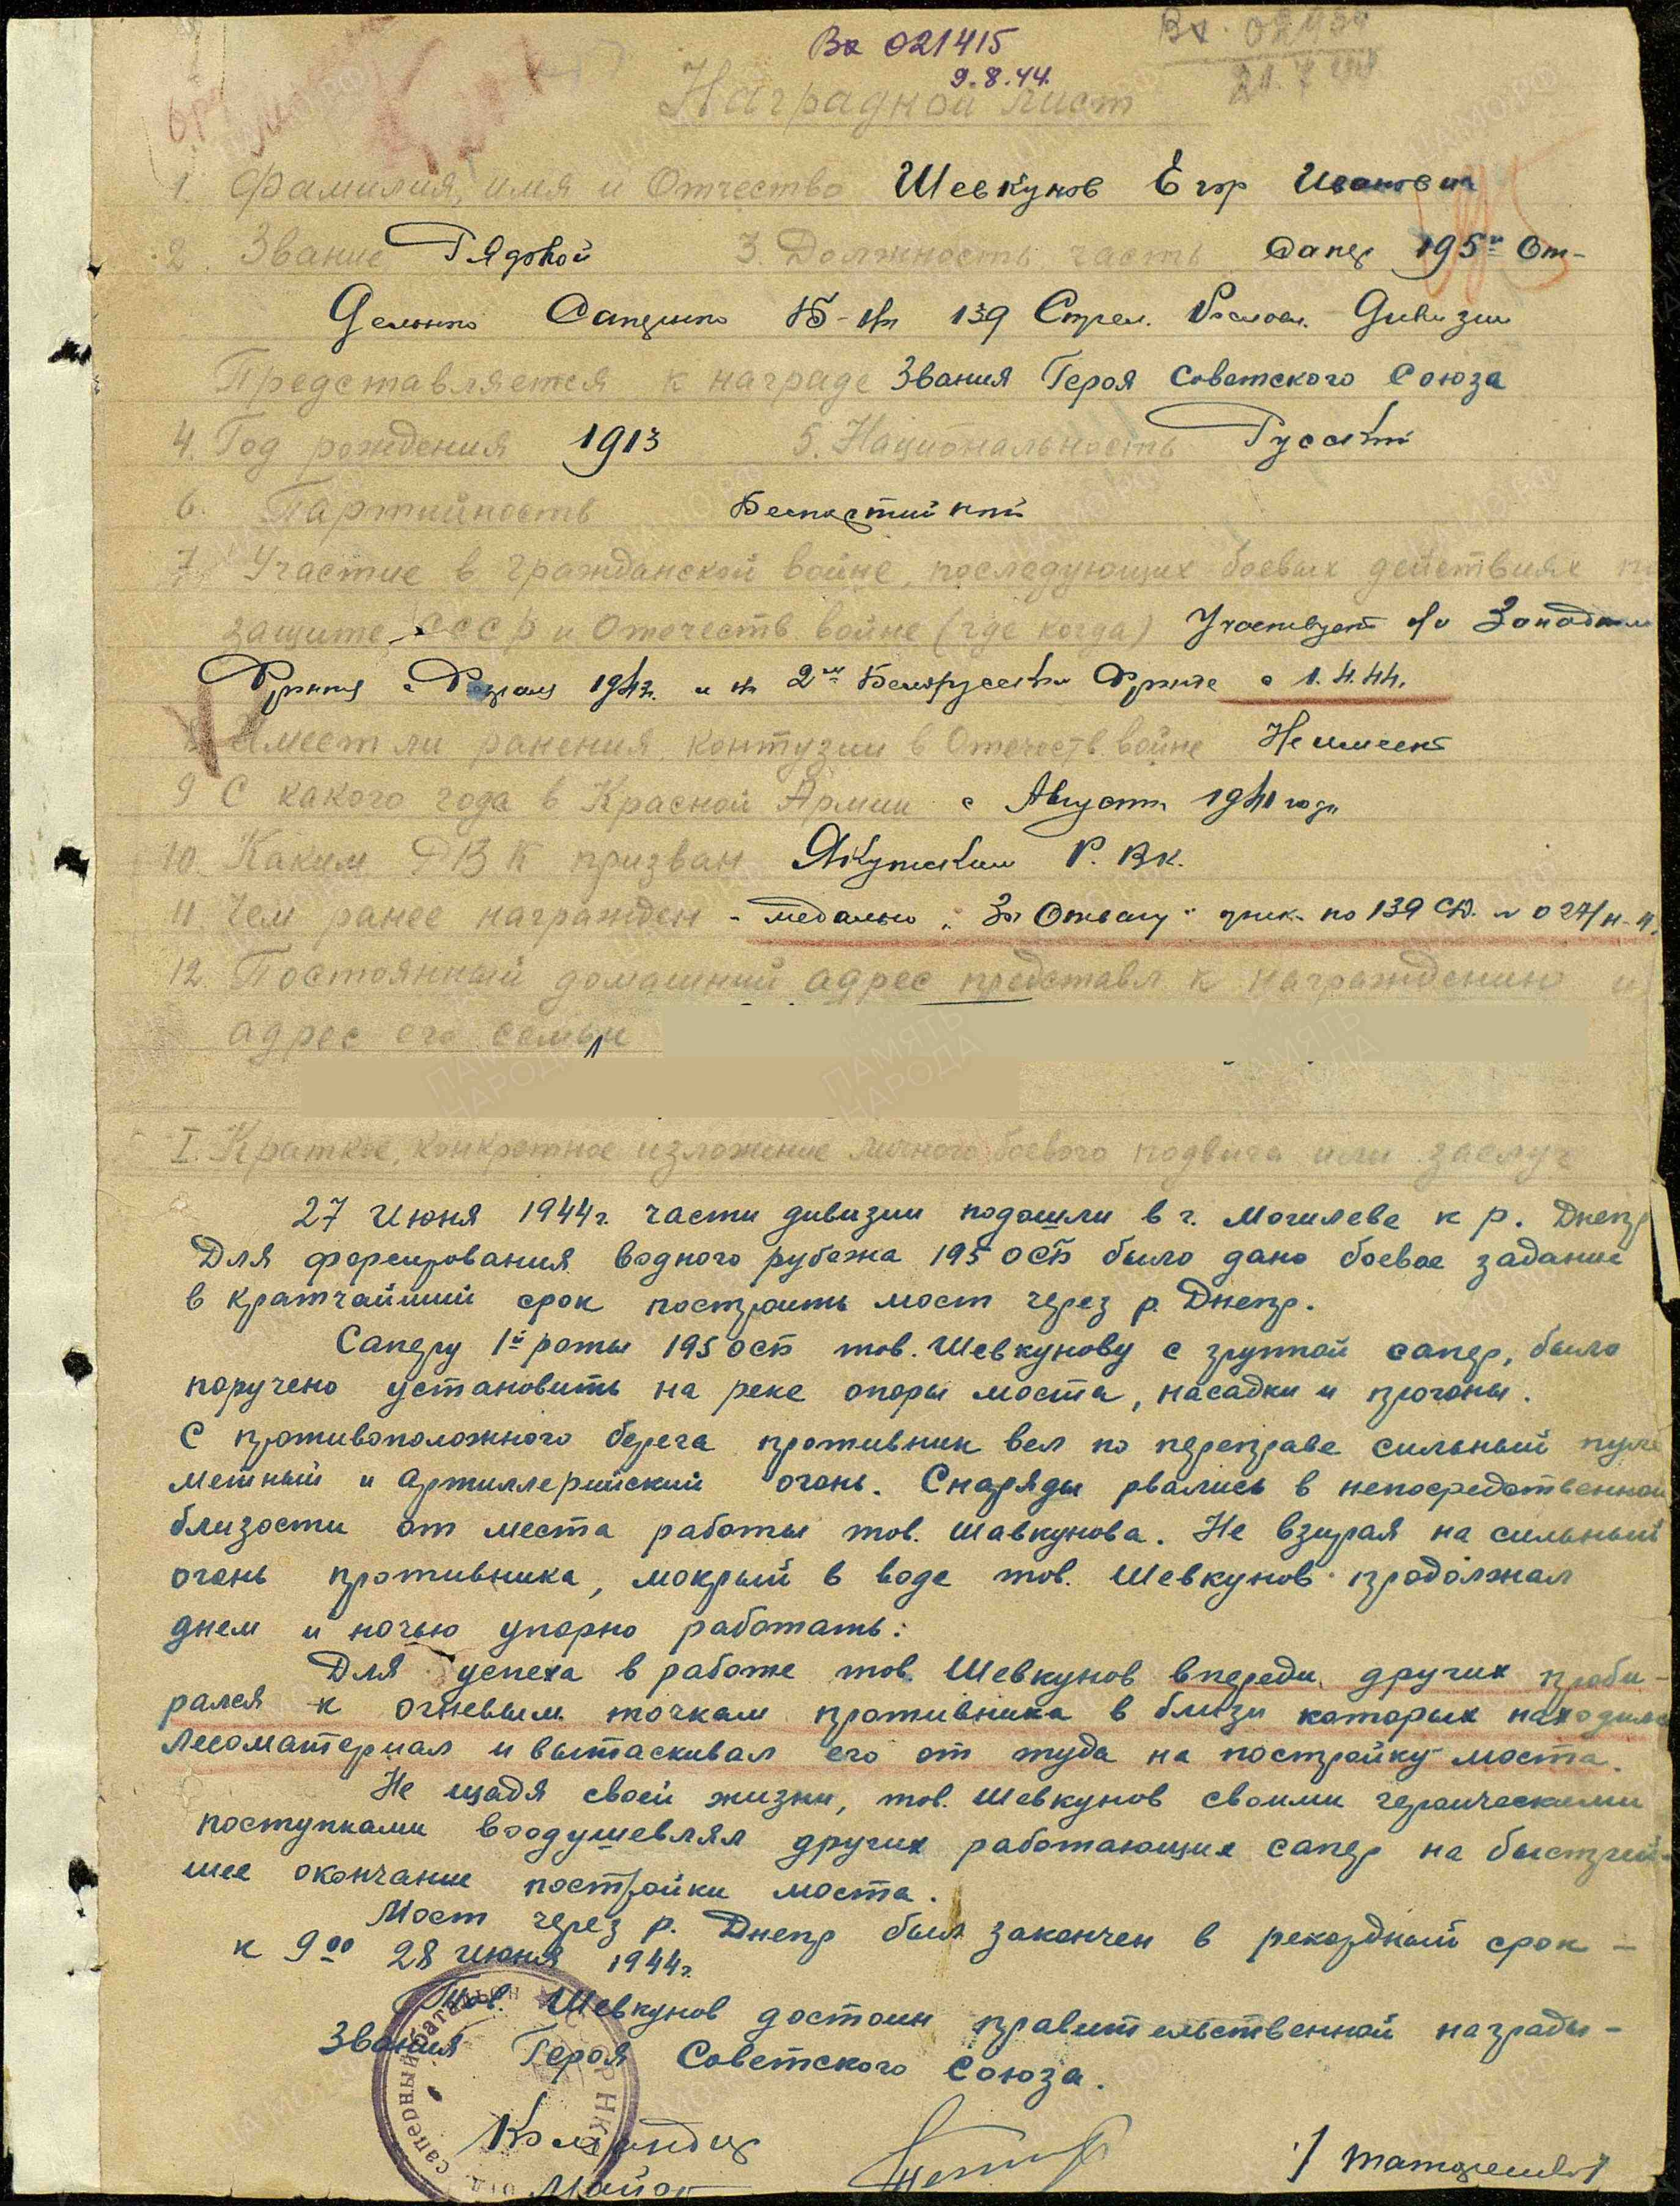 Вх 021415
9.8.44.
Наградной лист
1. Фамилия, имя и Отчество Шевкунов Егор Иванович
2. Звание Рядовой 3. Должность часть Сапер 195го От-
дельного Саперного Б-на 139 Стрел. Рославл. Дивизии
Представляется к награде Звания Героя Советского Союза
4. Год рождения 1913 5. Национальность Русский
6. Партийность Беспартийный
7. Участие в гражданской войне, последующих боевых действиях по
защите СССР и Отечеств. войне (где когда) Участвует на Западном
Фронте с 194 г. и на 2ом Белорусском Фронте с 1.4.44.
8. Имеет ли ранения, контузии в Отечеств. войне Не имеет
9. С какого года в Красной Армии с Августа 1941 года
10. Каким РВК призван Р.Вк.
11. Чем ранее награжден - медалью "За Отвагу" прик. по 139 СД. № 027/н-
12. Постоянный домашний адрес представл. к награждению и
адрес его семьи
I. Краткое, конкретное изложение личного боевого подвига или заслуг
27 Июня 1944г. части дивизии подошли в г. Могилеве к р. Днепр
Для форсирования водного рубежа 195 ОСБ было дано боевое задание
в кратчайший срок построить мост через р. Днепр.
Саперу 1й роты 195 ОСБ тов. Шевкунову с группой сапер, было
поручено установить на реке опоры моста, насадки и прогоны.
С противоположного берега противник вел по переправе сильный пуле
метный и артиллерийский огонь. Снаряды рвались в непосредственной
близости от места работы тов. Шавкунова. Не взирая на сильный
огонь противника, мокрый в воде тов. Шевкунов продолжал
днем и ночью упорно работать.
Для успеха в работе тов. Шевкунов впереди других проби-
рался к огневым точкам противника в близи которых находил
Лесоматериал и вытаскивал его от туда на постройку моста.
Не щадя своей жизни, тов. Шевкунов своими героическими
поступками воодушевлял других работающих сапер на быстрей-
шее окончание постройки моста.
Мост через р. Днепр был закончен в рекордный срок -
к 9 00 28 июня 1944г.
Тов. Шевкунов достоин правительственной награды -
Звания Героя Советского Союза.
Командир
Майор
ПАМЯТЬ НАРОДА